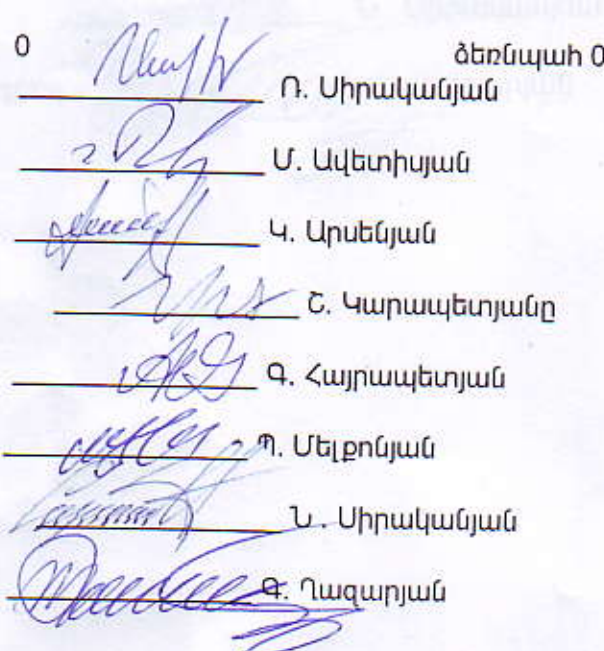 0 ձեռնպահ 0
Ռ. Սիրականյան
Մ. Ավետիսյան
Կ. Արսենյան
Շ. Կարապետյանը
Գ. Հայրապետյան
Պ. Մելքոնյան
Ն . Սիրականյան
Գ. Ղազարյան